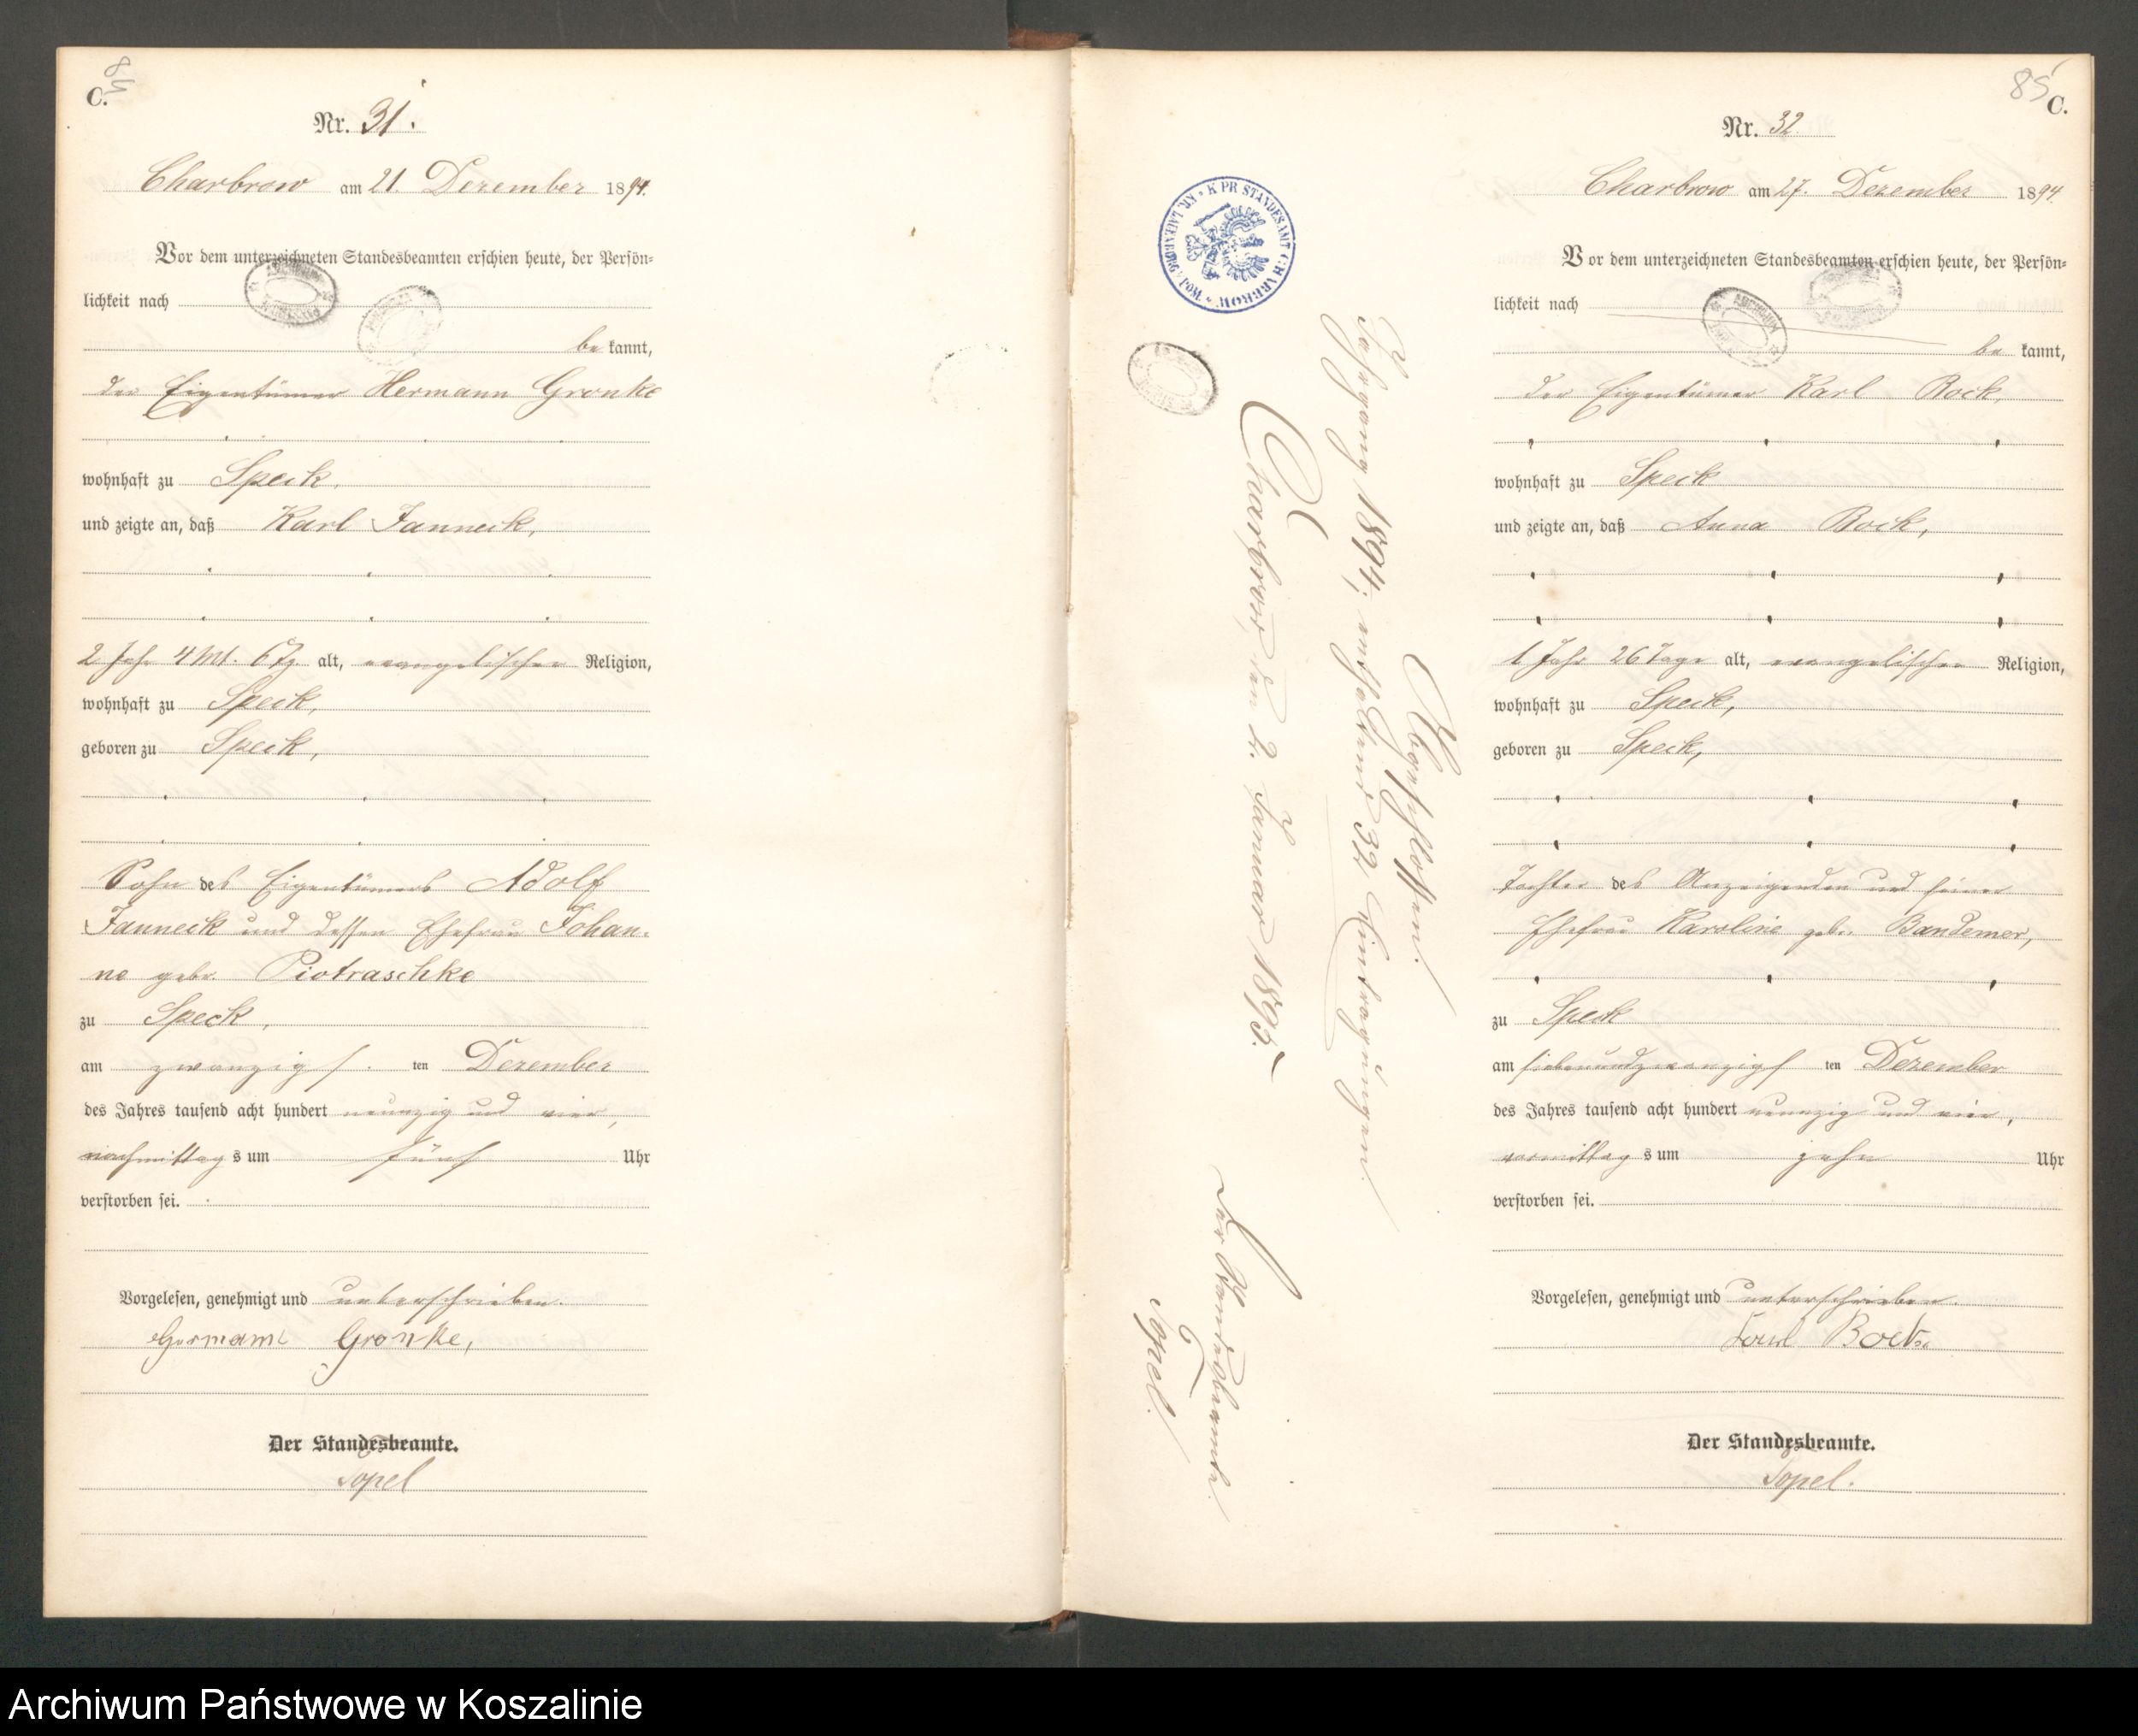 C.
Nr. 31.
Charbrow am 21. Dezember 1894.
Vor dem unterzeichneten Standesbeamten erschien heute, der Persön-
lichkeit nach
be kannt,
der Eigentümer Hermann Gronke
wohnhaft zu Speck,
und zeigte an, daß Karl Janneck,
2 Jahr 4 Mt. 6 Tg. alt, evangelischer Religion,
wohnhaft zu Speck,
geboren zu Speck,
Sohn des Eigentümers Adolf
Janneck und dessen Ehefrau Johan-
ne geb. Piotraschke
zu Speck,
am zwanzigs ten Dezember
des Jahres tausend acht hundert neunzig und vier,
nachmittag s um fünf Uhr
verstorben sei.
Vorgelesen, genehmigt und unterschrieben.
Hermann Gronke,
Der Standesbeamte.
Topel
K. PR. STANDESAMT CHARBROW
KR. LAUENBURG i. POM.
Abgeschlossen.
Jahrgang 1894, enthaltend 32 Eintragungen.
Charbrow, den 2. Januar 1895.
Der Standesbeamte.
Topel.
85
C.
Nr. 32.
Charbrow am 27. Dezember 1894.
Vor dem unterzeichneten Standesbeamten erschien heute, der Persön-
lichkeit nach
be kannt,
der Eigentümer Karl Bock,
wohnhaft zu Speck
und zeigte an, daß Anna Bock,
1 Jahr 26 Tage alt, evangelischer Religion,
wohnhaft zu Speck,
geboren zu Speck,
Tochter des Anzeigenden und seiner
Ehefrau Karoline geb. Bandemer,
zu Speck
am siebenundzwanzigs ten Dezember
des Jahres tausend acht hundert neunzig und vier,
vormittag s um zehn Uhr
verstorben sei.
Vorgelesen, genehmigt und unterschrieben.
Karl Bock
Der Standesbeamte.
Topel.
Archiwum Państwowe w Koszalinie